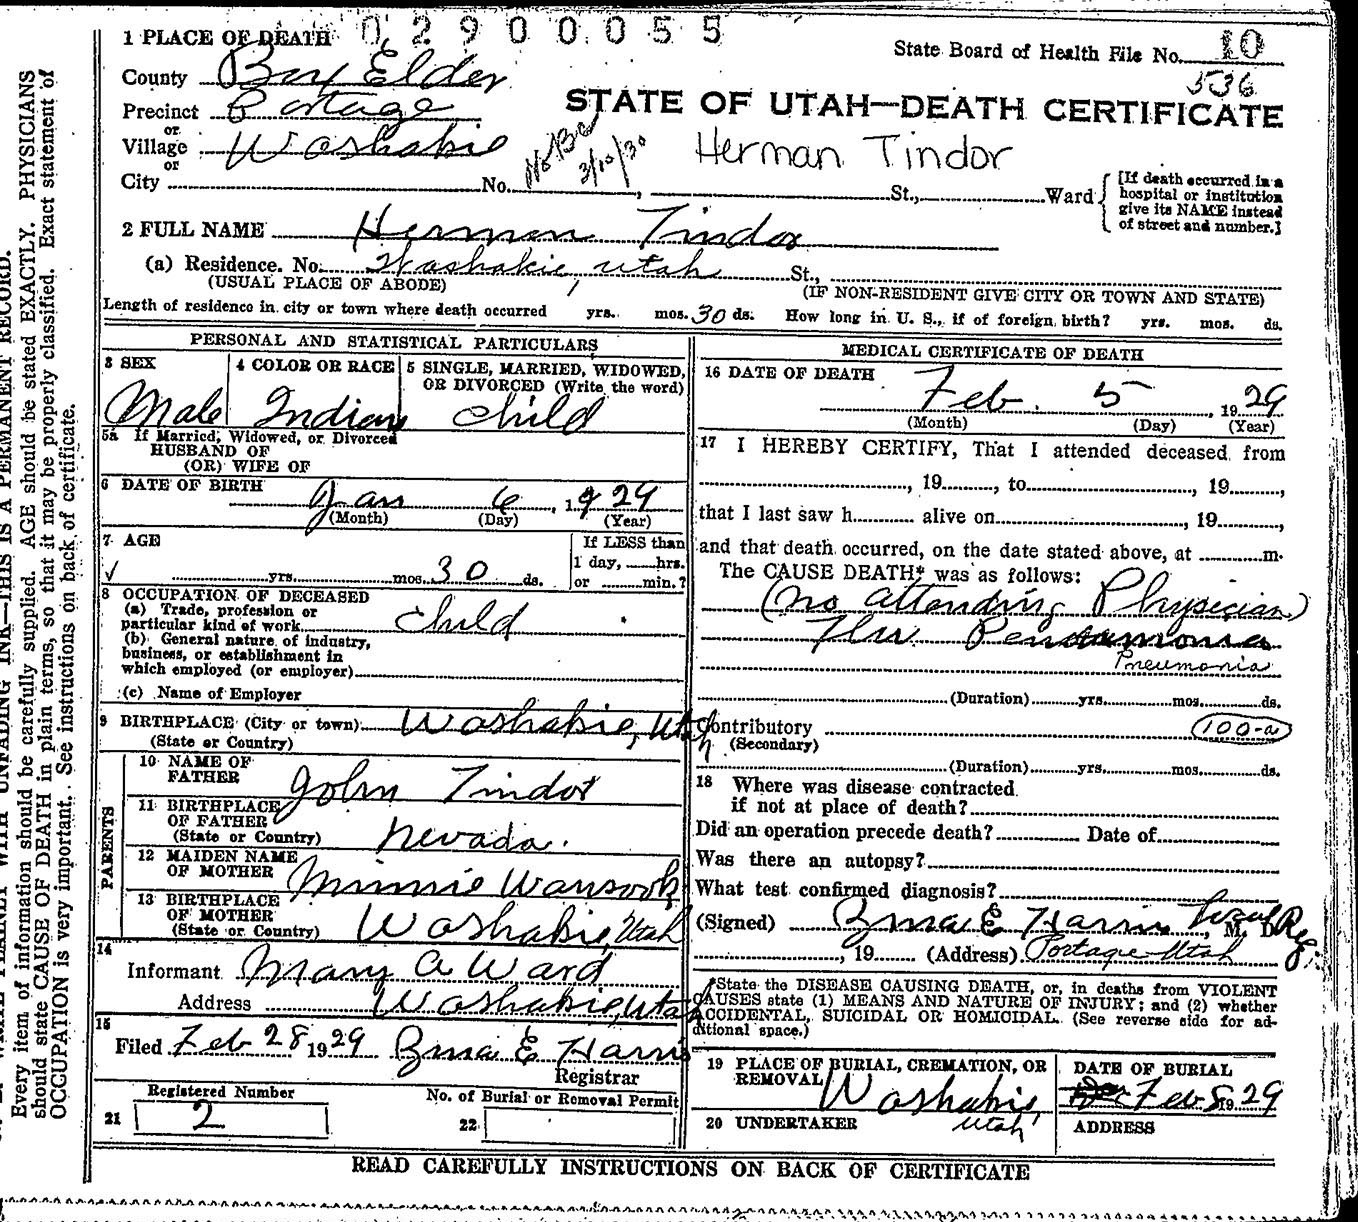 0 2 9 0 0 0 5 5
1 PLACE OF DEATH
State Board of Health File No. 10
536
County Box Elder
Precinct Portage
or
Village Washakie
or
City No. St., Ward
STATE OF UTAH—DEATH CERTIFICATE
No B C
3/10/30
Herman Tindor
[If death occurred in a
hospital or institution
give its NAME instead
of street and number.]
2 FULL NAME Herman Tindor
(a) Residence. No. Washakie, Utah St.,
(USUAL PLACE OF ABODE) (IF NON-RESIDENT GIVE CITY OR TOWN AND STATE)
Length of residence in city or town where death occurred yrs. mos. 30 ds. How long in U. S., if of foreign birth? yrs. mos. ds.
PERSONAL AND STATISTICAL PARTICULARS
3 SEX
Male
4 COLOR OR RACE
Indian
5 SINGLE, MARRIED, WIDOWED,
OR DIVORCED (Write the word)
Child
5a If Married, Widowed, or Divorced
HUSBAND OF
(OR) WIFE OF
6 DATE OF BIRTH Jan 6, 1929
(Month) (Day) (Year)
7 AGE
yrs. mos. 30 ds.
If LESS than
1 day, hrs.
or min.?
8 OCCUPATION OF DECEASED
(a) Trade, profession or
particular kind of work Child
(b) General nature of industry,
business, or establishment in
which employed (or employer)
(c) Name of Employer
9 BIRTHPLACE (City or town) Washakie, Utah
(State or Country)
PARENTS
10 NAME OF
FATHER John Tindor
11 BIRTHPLACE
OF FATHER
(State or Country) Nevada.
12 MAIDEN NAME
OF MOTHER Minnie Wansook
13 BIRTHPLACE
OF MOTHER
(State or Country) Washakie, Utah
14
Informant Mary A Ward
Address Washakie, Utah
15
Filed Feb 28 1929 Zina E Harris
Registrar
Registered Number
21 2
No. of Burial or Removal Permit
22
MEDICAL CERTIFICATE OF DEATH
16 DATE OF DEATH Feb. 5, 1929
(Month) (Day) (Year)
17 I HEREBY CERTIFY, That I attended deceased from
, 19 , to , 19 ,
that I last saw h alive on , 19 ,
and that death occurred, on the date stated above, at m.
The CAUSE DEATH* was as follows:
(no attending Physician)
Flu
Pneumonia
(Duration) yrs. mos. ds.
Contributory 100-a
(Secondary)
(Duration) yrs. mos. ds.
18 Where was disease contracted
if not at place of death?
Did an operation precede death? Date of
Was there an autopsy?
What test confirmed diagnosis?
(Signed) Zina E Harris Local Reg., M. D.
, 19 (Address) Portage Utah
*State the DISEASE CAUSING DEATH, or, in deaths from VIOLENT
CAUSES state (1) MEANS AND NATURE OF INJURY; and (2) whether
ACCIDENTAL, SUICIDAL OR HOMICIDAL. (See reverse side for ad-
ditional space.)
19 PLACE OF BURIAL, CREMATION, OR
REMOVAL Washakie,
Utah
DATE OF BURIAL
Feb 8 1929
20 UNDERTAKER
ADDRESS
READ CAREFULLY INSTRUCTIONS ON BACK OF CERTIFICATE
WITH UNFADING INK—THIS IS A PERMANENT RECORD.
Every item of information should be carefully supplied. AGE should be stated EXACTLY. PHYSICIANS
should state CAUSE OF DEATH in plain terms, so that it may be properly classified. Exact statement of
OCCUPATION is very important. See instructions on back of certificate.